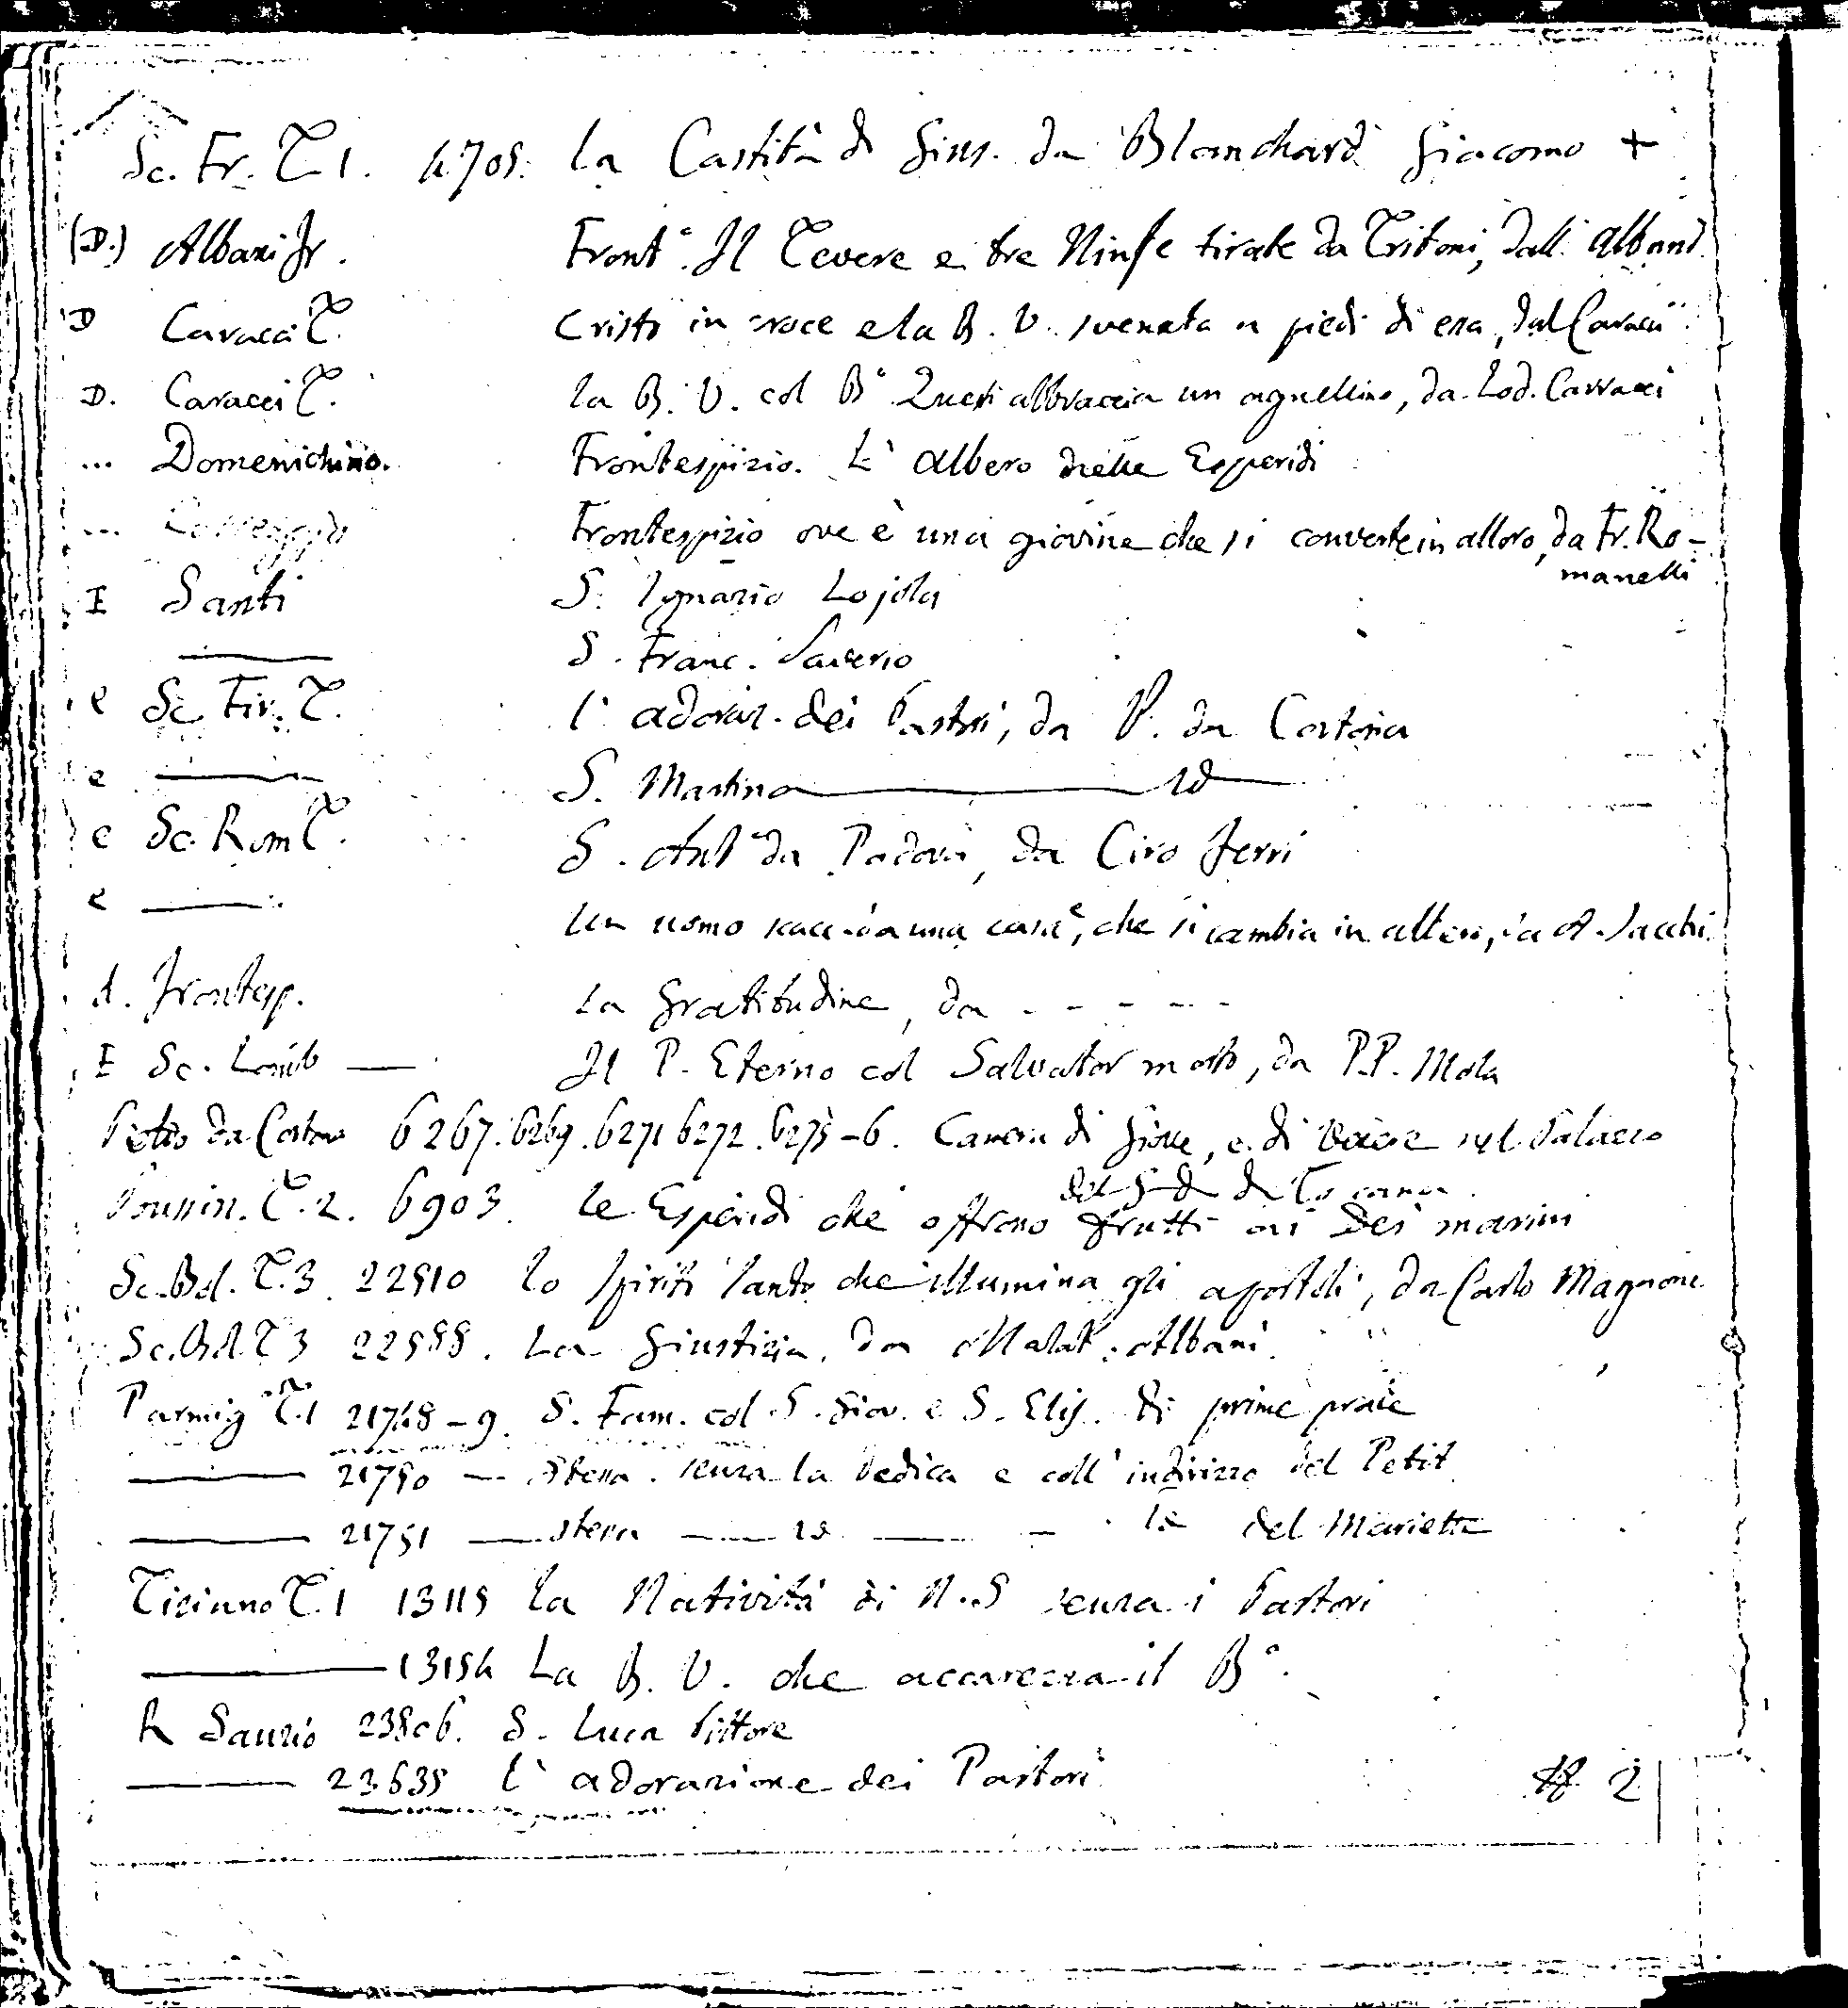 Sc. Fr. T. 1. 4705. La Castità di Gius. da Blanchard Giacomo +
(D.) Albani Fr. Front.e Il Tevere e tre Ninfe tirate da Tritoni, dall' Albani
D Caracci T. Cristo in croce e la B. V. svenuta a piedi di essa, dal Caracci
D. Caracci T. La B. V. col B.o Questi abbraccia un agnellino, da Lod. Carracci
... Domenichino. Frontespizio. L' albero delle Esperidi
... Frontespizio ove è una giovine che si converte in alloro, da Fr. Ro-
manelli
E Santi S. Ignazio Lojola
S. Franc. Saverio
e Sc. Fir. T. L' adoraz. dei Pastori, da P. da Cortona
e S. Martino id
e Sc. Rom T. S. Ant.o da Padova, da Ciro Ferri
e Un uomo una che si cambia in albero, da A. Sacchi
d. Frontesp. La Gratitudine, da - - - - -
E Sc. Lomb Il P. Eterno col Salvator morto, da P.P. Mola
Pietro da Cortona 6267. 6269. 6271 6272. 6275-6. Camera di Giove, e di Venere nel Palazzo
del G. D. di Toscana
Poussin. T. 2. 6903. Le Esperidi che offrono frutti ai Dei marini
Sc. Bol. T. 3. 22510 Lo Spirito Santo che illumina gli apostoli, da Carlo Magnone
Sc. Bol. T 3 22588. La Giustizia, da Malat. Albani.
Parmig T. 1 21748-9. S. Fam. col S. Giov. e S. Elis. di prime prove
21750 — Stessa. senza la Dedica e coll' indirizzo del Petit
21751 — stessa — id — id del Mariette
Tiziano T. 1 13115 La Natività di N. S senza i Pastori
13154 La B. V. che accarezza il B.o
R Sanzio 23506. S. Luca Pittore
23635 L' adorazione dei Pastori
2